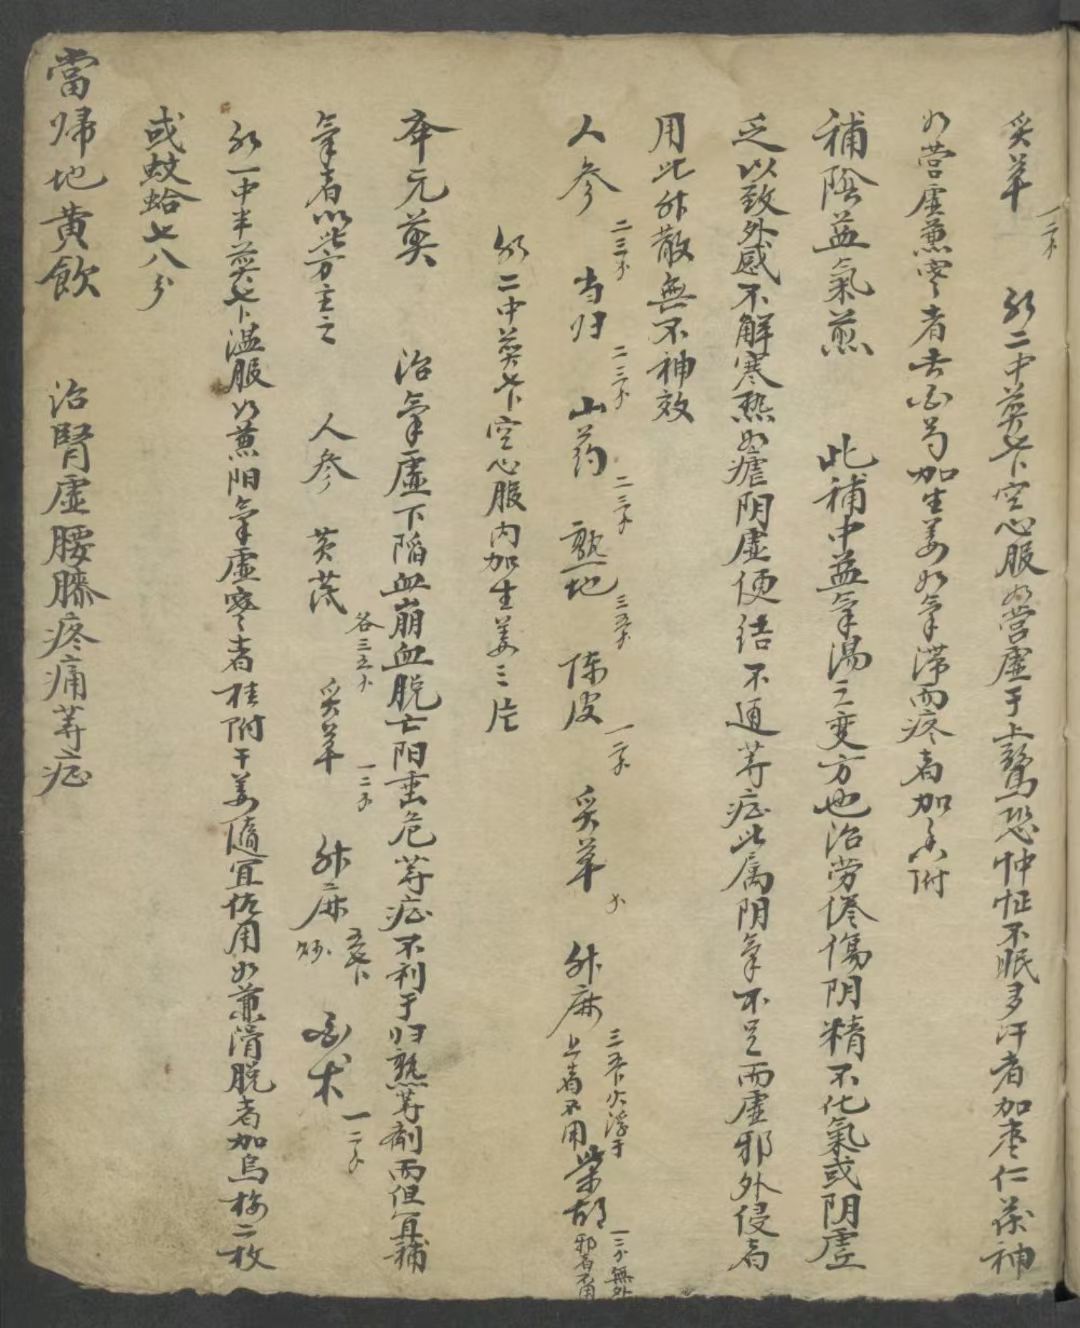 炙草 一二水二中煎七卜空心服如营虚于上驚恐怔忡不眠多汗者加枣仁茯神
如营虚兼寒者去白芍加生姜如氣滞而疼者加香附
補陰益氣煎 此補中益氣湯之变方也治劳倦傷阴精不化氣或阴虚
乏以致外感不解寒热如瘧阴虚便结不通等症此属阴氣不足而虚邪外侵者
用此升散無不神效
人參 二三 当归 二三 山药 二三 熟地 三五 陈皮 一 炙草 升麻 三五卜火浮于上者不用 柴胡 一二 無外邪者不用
水二中煎七卜空心服内加生姜三片
举元煎 治氣虚下陷血崩血脱亡阳垂危等症不利于归熟等剤而但宜補
氣者以此方主之 人參 黄茂 各三五 炙草 一二 升麻 五七卜炒 白术 一二
水一中半煎七卜温服如兼阳氣虚寒者桂附干姜隨宜佐用如兼滑脱者加烏梅二枚
或蚊蛤七八分
當帰地黄飲 治腎虚腰膝疼痛等症